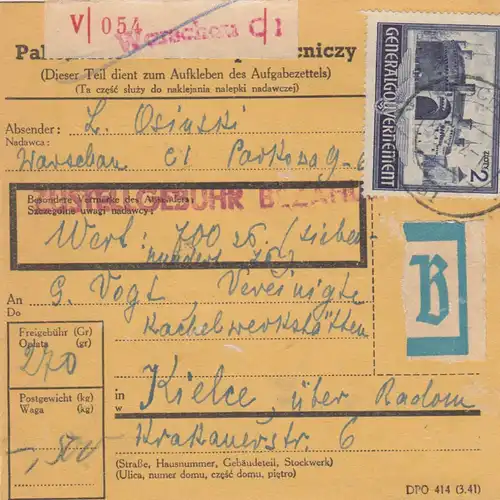 V 054
Warschau C1
(Dieser Teil dient zum Aufkleben des Aufgabezettels)
(Ta część służy do naklejania nalepki nadawczej)
GENERALGOUVERNEMENT
2 ZŁOTY
Absender: L. Osinski
Nadawca:
Warschau C1 Parkowa 9-6
Besondere Vermerke des Absenders:
Szczególne uwagi nadawcy:
ZUSTELLGEBÜHR BEZAHLT
Wert: 700 zł. (sieben
hundert zł.)
An G. Vogt, Vereinigte
Do
Kachelwerkstätten
B
Freigebühr (Gr)
Opłata (gr)
270
Postgewicht (kg)
Waga (kg)
in Kielce, über Radom
w
Krakauerstr. 6
(Straße, Hausnummer, Gebäudeteil, Stockwerk)
(Ulica, numer domu, część domu, piętro)
DPO 414 (3.41)